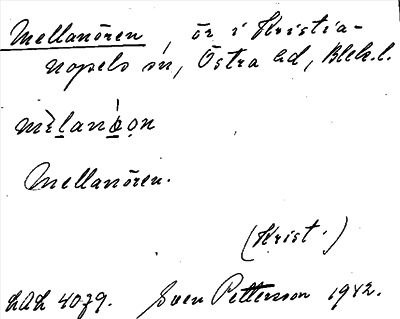 Mellanören, ör i Kristia-
nopels sn, Östra hd, Blek.l.
Mellanören.
(Krist.)
LAL 4079. Sven Petterson 1942.